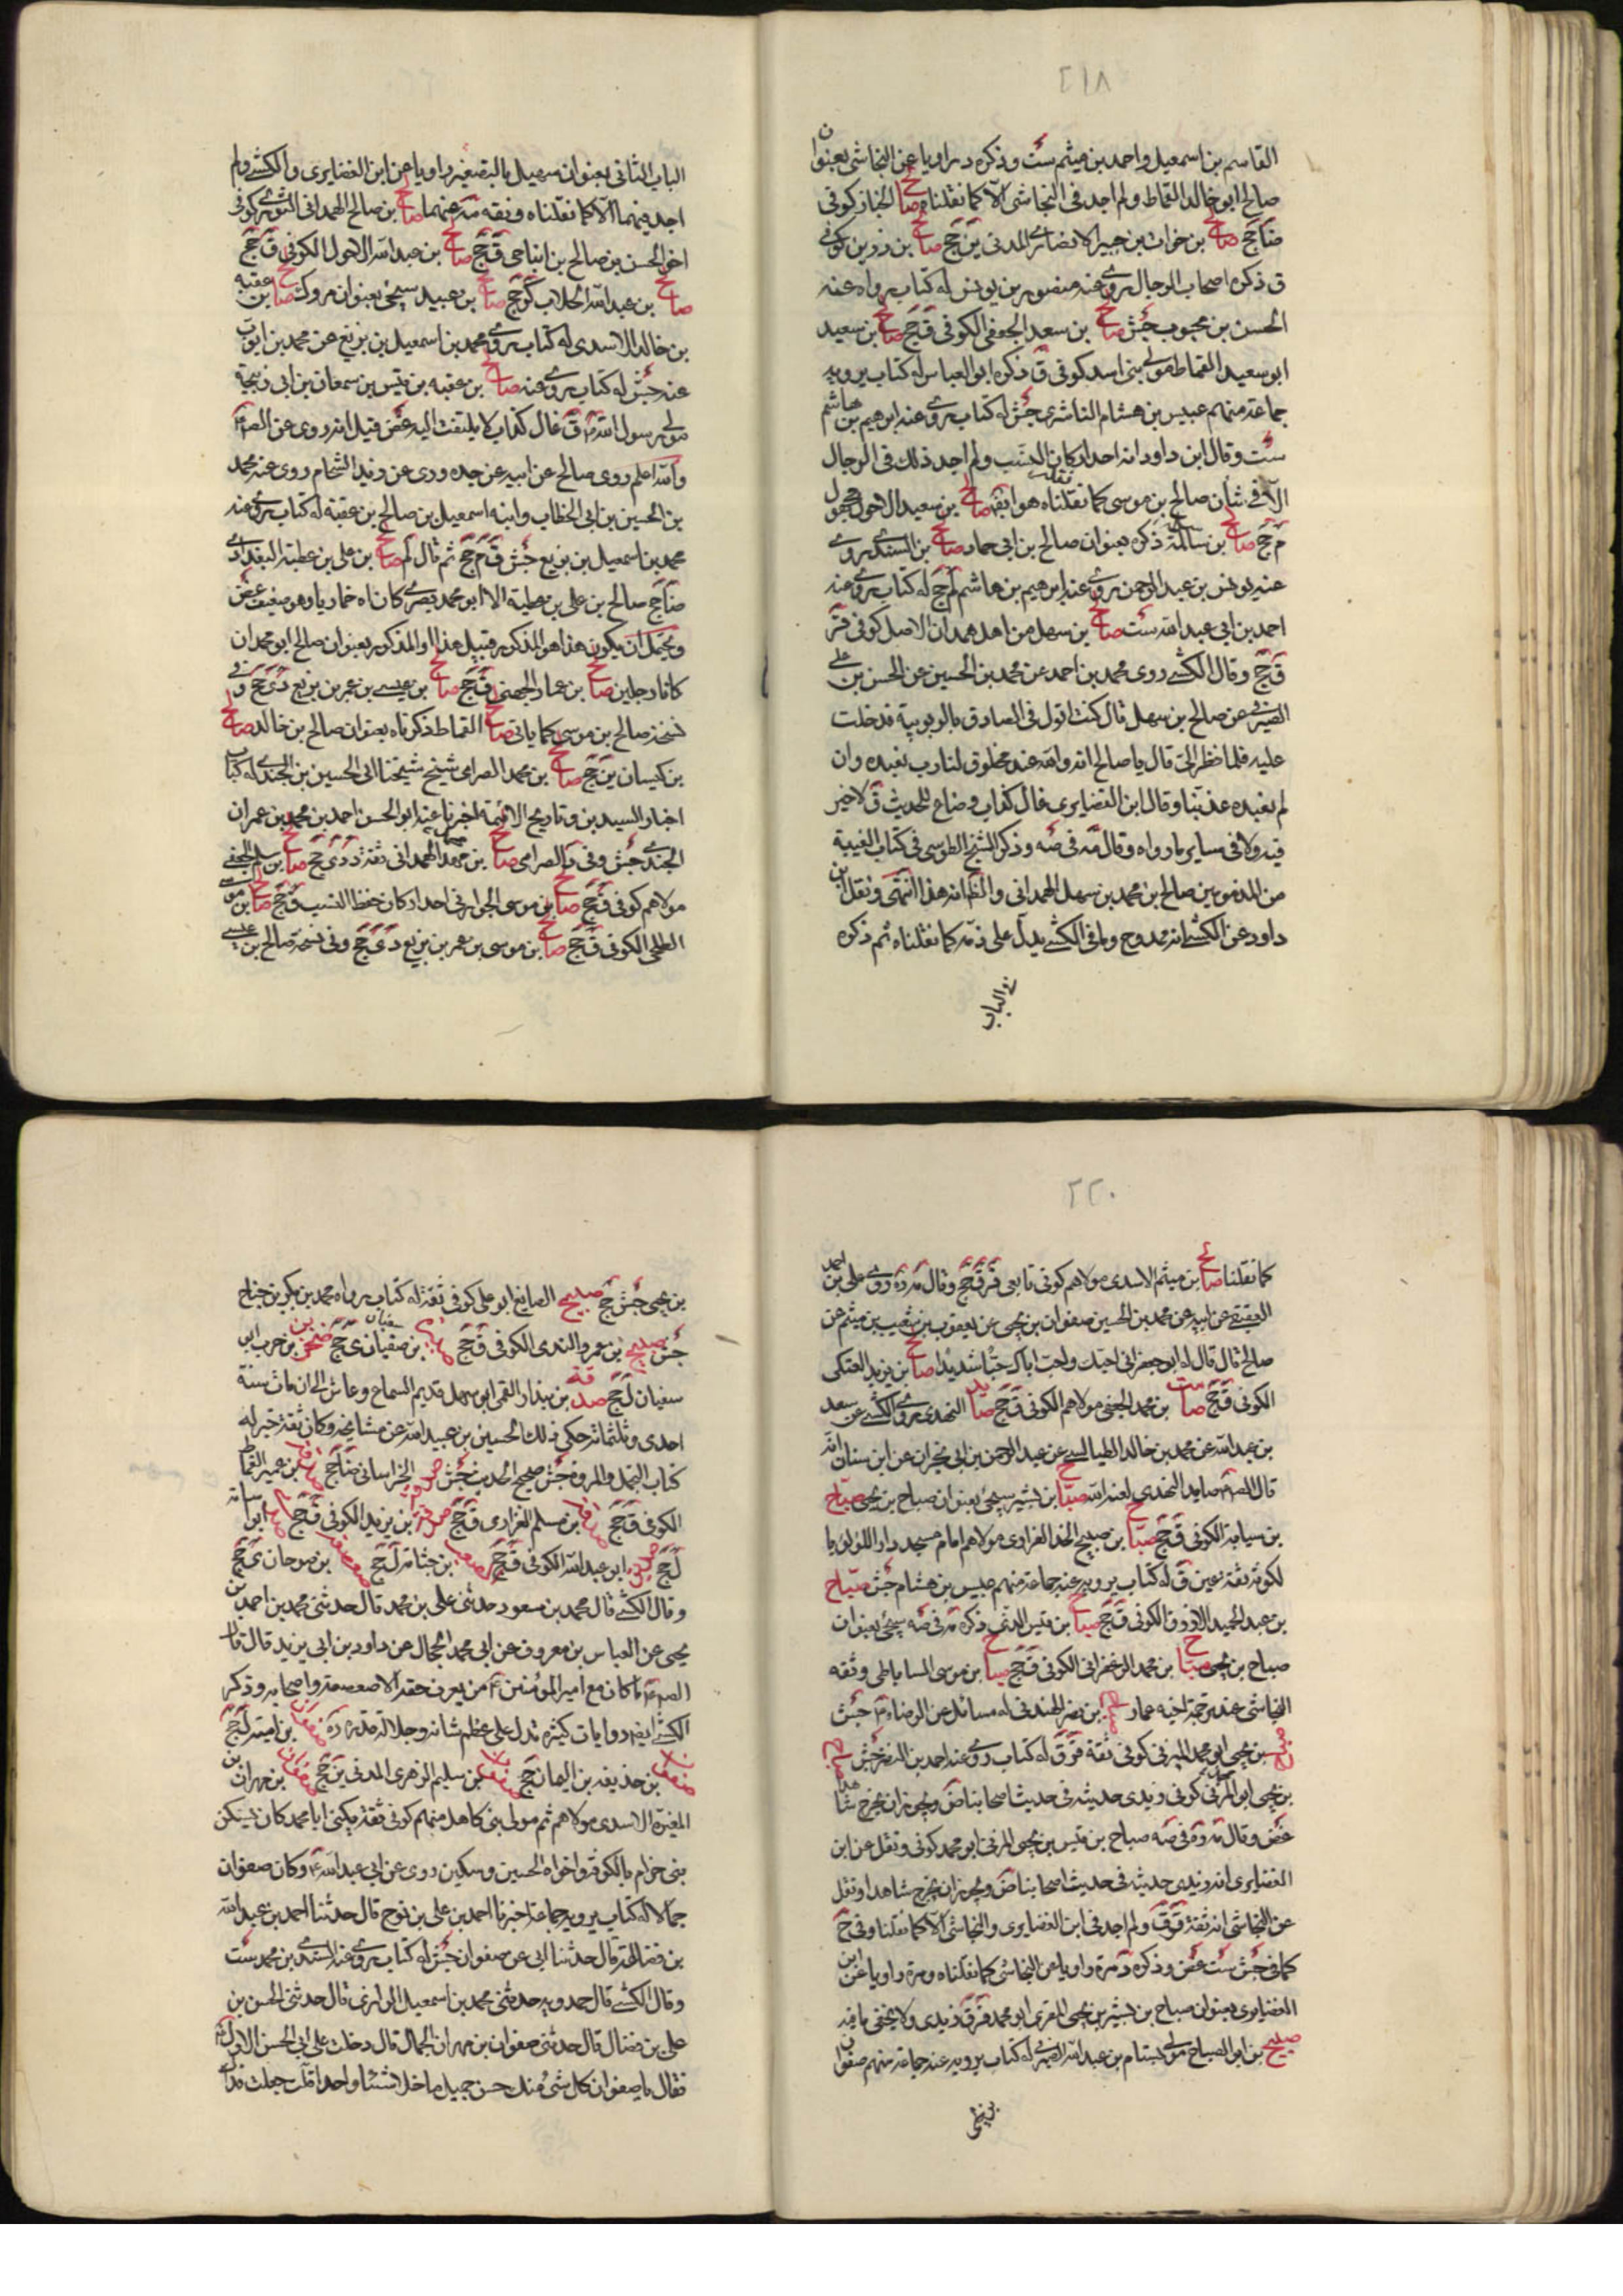 ٢١٨
القاسم بن اسمعيل واحمد بن ميثم ست وذكره د راويا عن النجاشى بعنوان
صالح ابو خالد القماط ولم اجد فى النجاشى الا كما نقلناه صالح الخباز كوفى
صالح بن خوات بن جبير الانصارى المدنى ين جخ صالح بن رزين كوفى
ق ذكره اصحاب الرجال روى عنه منصور بن يونس له كتاب رواه عنه
الحسن بن محبوب جش صالح بن سعد الجعفى الكوفى ق جخ صالح بن سعيد
ابو سعيد القماط مولى بنى اسد كوفى ق ذكره ابو العباس له كتاب يرويه
جماعة منهم عبيس بن هشام الناشرى جش له كتاب روى عنه ابرهيم بن هاشم
ست وقال ابن داود انه احد كان النسب ولم اجد ذلك فى الرجال
الا فى شان صالح بن موسى كما نقلناه صالح بن سعيد الاحول مجهول
م جخ صالح بن سلمة ذكره بعنوان صالح بن ابى حماد صالح بن السندى روى
عنه يونس بن عبد الرحمن روى عنه ابرهيم بن هاشم لم جخ له كتاب روى عنه
احمد بن ابى عبد الله ست صالح بن سهل من اهل همدان الاصل كوفى قر
ق جخ وقال الكشى روى محمد بن احمد عن محمد بن الحسين عن الحسن بن على
الصيرفى عن صالح بن سهل قال كنت اقول فى الصادق بالربوبية فدخلت
عليه فلما نظر الى قال يا صالح انه والله عبد مخلوق لنا رب نعبده وان
لم نعبده عذبنا وقال ابن الغضايرى غال كذاب وضاع للحديث ق لا خير
فيه ولا فى ساير ما رواه وقال مة فى صه وذكر الشيخ الطوسى فى كتاب الغيبة
من المذمومين صالح بن محمد بن سهل الهمدانى والظ انه هذا انتهى ونقل ابن
داود عن الكشى انه ممدوح وما فى الكشى يدل على ذمه كما نقلناه ثم ذكره
فى الباب
الباب الثانى بعنوان سهيل بالتصغير راويا عن ابن الغضايرى والكشى ولم
اجد فيهما الا كما نقلناه صالح بن صالح الهمدانى الثورى كوفى
اخو الحسن بن صالح بن ابنا حى ق جخ صالح بن عبد الله الاحول الكوفى ق جخ
صالح بن عبد الله الجلاب كر جخ صالح بن عبيد سيجئ بعنوان مروك صالح بن عقبه
بن خالد الاسدى له كتاب روى محمد بن اسمعيل بن بزيع عن محمد بن ايوب
عنه جش له كتاب روى عنه صالح بن عقبه بن قيس بن سمعان بن ابى ربيحة
مولى رسول الله ق غال كذاب لا يلتفت اليه غض قيل انه روى عن الص
والله اعلم روى صالح عن ابيه عن جده وروى عن زيد الشحام روى عنه محمد
بن الحسين بن ابى الخطاب وابنه اسمعيل بن صالح بن عقبة له كتاب روى عنه
محمد بن اسمعيل بن بزيع جش ق م جخ ثم قال لم صالح بن على بن عطية البغدادى
ضا جخ صالح بن على بن عطية ابو محمد بصرى كان اه خماريا وهو ضعيف غض
ويحتمل ان يكون هذا هو المذكور قبيل هذا او المذكور بعنوان صالح ابو محمد ان
كانا رجلين صالح بن عمار الجهنى ق جخ صالح بن عيسى بن عمر بن بزيع دى جخ وفى
نسخة صالح بن موسى كما ياتى صالح القماط ذكرناه بعنوان صالح بن خالد صالح
بن كيسان ين جخ صالح بن محمد الصرامى شيخ شيخنا ابى الحسين بن الجندى له كتاب
اخبار السيد بن وتاريخ الائمة اخبرنا عنه ابو الحسن احمد بن محمد بن عمران
الجندى جش وفى د الصرامى صالح بن محمد الهمدانى ثقة دى جخ صالح بن سلم الجعفى
مولاهم كوفى ق جخ صالح بن موسى الجواربى احد كان حفظ النسب ق جخ صالح بن موسى
الطلحى الكوفى ق جخ صالح بن موسى بن عمر بن بزيع دى جخ وفى نسخة صالح بن عيسى
٢٢٠
كما نقلنا صالح بن ميثم الاسدى مولاهم كوفى تابعى قر ق جخ وقال مة روى على بن احمد
العقيقى عن ابيه عن محمد بن الحسين صفوان بن يحيى عن يعقوب بن شعيب بن ميثم عن
صالح قال قال له ابو جعفر انى احبك واحب اباك حبا شديدا صالح بن يزيد العتكى
الكوفى ق جخ صامت بن محمد الجعفى مولاهم الكوفى ق جخ صايد النهدى روى الكشى عن سعد
بن عبد الله عن محمد بن خالد الطيالسى عن عبد الرحمن بن ابى نجران عن ابن سنان انه
قال الص صايد النهدى لعنه الله صباح بن بشير سيجئ بعنوان صباح بن يحيى صباح
بن سيابة الكوفى ق جخ صباح بن صبيح الحذا الفزارى مولاهم امام مسجد دار اللؤلؤ يا
لكوفه ثقة عين ق له كتاب يرويه عنه جماعة منهم عبيس بن هشام جش صباح
بن عبد الحميد الازرق الكوفى ق جخ صباح بن قيس الدثى ذكره مة فى صه سيجئ بعنوان
صباح بن يحيى صباح بن محمد الزعفرانى الكوفى ق جخ صباح بن موسى الساباطى وثقه
النجاشى عند ترجمة اخيه عمار صباح بن نصر الهندى له مسائل عن الرضا جش
صباح بن يحيى ابو محمد المزنى كوفى ثقة قر ق له كتاب روى عنه احمد بن النضر جش
بن يحيى ابو محمد المزنى كوفى زيدى حديثه فى حديث اصحابنا ض ويجوز ان يخرج شاهدا
غض وقال مة فى صه صباح بن قيس بن يحيى المزنى ابو محمد كوفى ونقل عن ابن
الغضايرى انه زيدى حديثه فى حديث اصحابنا ض ويجوز ان يخرج شاهدا ونقل
عن النجاشى انه ثقة قر ق ولم اجد فى ابن الغضايرى والنجاشى الا كما نقلنا وفى جخ
كما فى جش ست غض وذكره د مرة راويا عن النجاشى كما نقلناه ومرة راويا عن ابن
الغضايرى بعنوان صباح بن بشير بن يحيى المقرى ابو محمد قر ق زيدى ولا يخفى ما فيه
صبيح بن ابو الصباح مولى بسام بن عبد الله الصيرفى له كتاب يرويه عنه جماعة منهم صفوان
بن يحيى
بن يحيى جش جخ صبيح الصايغ ابو على كوفى ثقة له كتاب رواه محمد بن بكر بن جناح
جش صبيح بن عمرو الندى الكوفى ق جخ بن صفيان ى جخ صخر بن حرب ابو
سفيان ل جخ صدقة بن بندار القمى ابو سهل قديم السماع وعاش الى ان مات سنة
احدى وثلثمائة حكى ذلك الحسين بن عبيد الله عن مشايخه وكان ثقة خير له
كتاب التجمل والمروة جش صحيح الحديث جش الخراسانى ضا جخ بن عمير القماط
الكوفى ق جخ بن مسلم الفزارى ق جخ بن يزيد الكوفى ق جخ ابو
ل جخ ابو عبد الله الكوفى ق جخ بن جثامة ل جخ بن صوحان ى جخ
وقال الكشى قال محمد بن مسعود حدثنى على بن محمد قال حدثنى محمد بن احمد بن
يحيى عن العباس بن معروف عن ابى محمد الحجال عن داود بن ابى يزيد قال قال
الص ما كان مع امير المؤمنين من يعرف حقه الا صعصعة واصحابه وذكر
الكشى روايات كثيرة تدل على عظم شانه وجلالة قدره ره صفوان بن امية ل جخ
صفوان بن حذيفه بن اليمان جخ صفوان بن سليم الزهرى المدنى ين جخ صفوان بن مهران بن
المغيرة الاسدى مولاهم ثم مولى بنى كاهل منهم كوفى ثقة يكنى ابا محمد كان يسكن
بنى حرام بالكوفة واخواه الحسين وسكين روى عن ابى عبد الله وكان صفوان
جمالا له كتاب يرويه جماعة اخبرنا احمد بن على بن نوح قال حدثنا احمد بن عبد الله
بن قضاعة قال حدثنا ابى عن صفوان جش له كتاب روى عنه السندى بن محمد ست
وقال الكشى قال حمدويه حدثنى محمد بن اسمعيل الرازى قال حدثنى الحسن بن
على بن فضال قال حدثنى صفوان بن مهران الجمال قال دخلت على ابى الحسن الاول
فقال يا صفوان كل شئ منك حسن جميل ما خلا شيئا واحدا قلت جعلت فداك